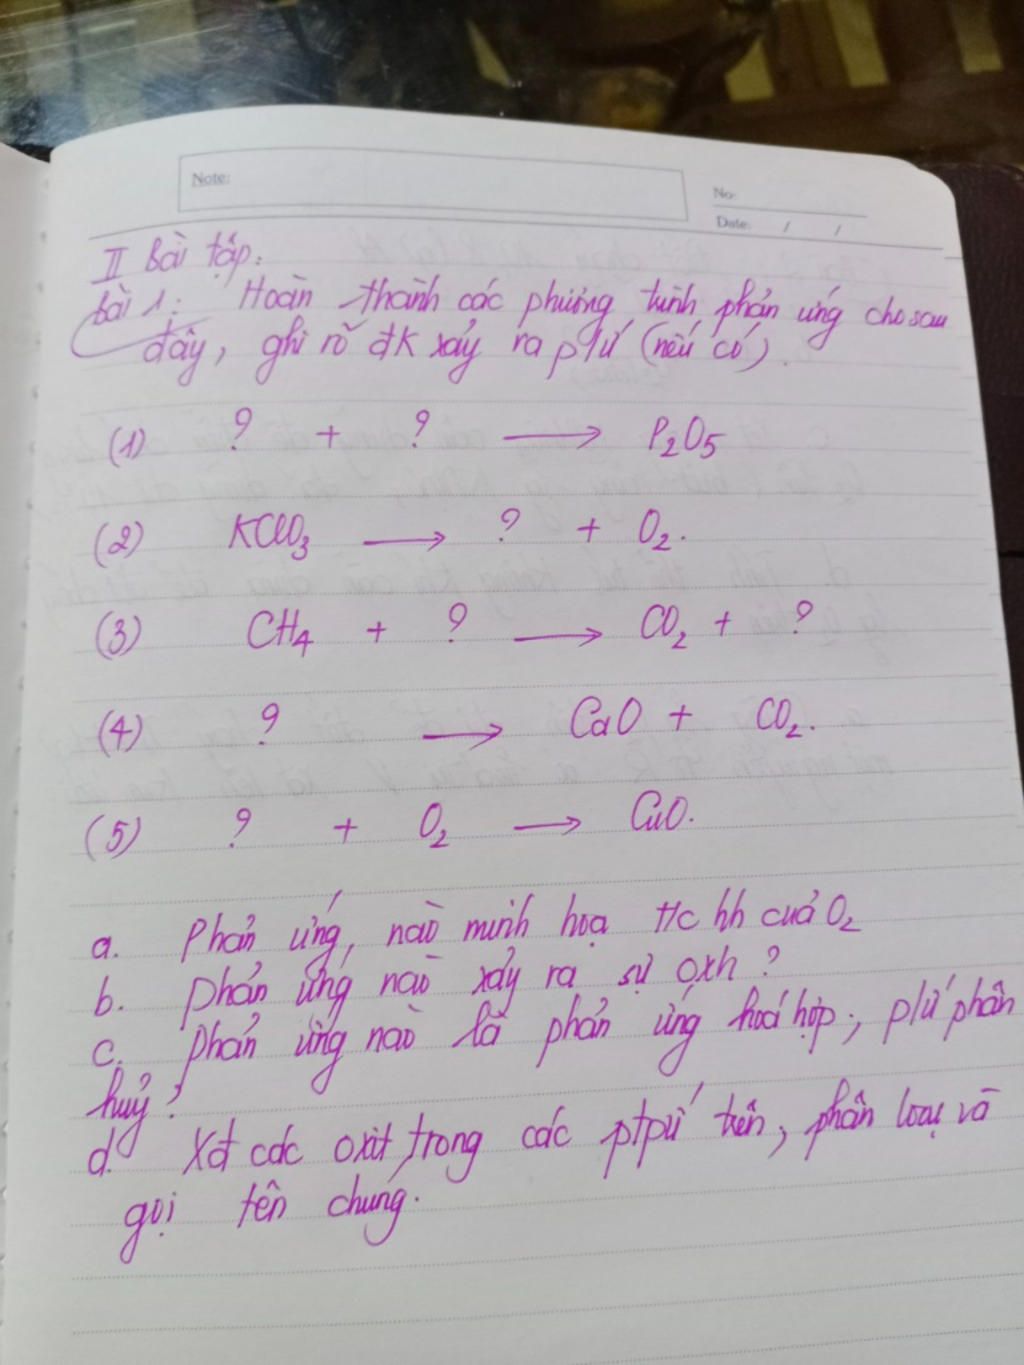 Note:
No:
Date: / /
II Bài tập:
Bài 1: Hoàn thành các phương trình phản ứng cho sau
đây, ghi rõ đk xảy ra pứ (nếu có).
(1) ? + ? → P₂O₅
(2) KClO₃ → ? + O₂.
(3) CH₄ + ? → CO₂ + ?
(4) ? → CaO + CO₂.
(5) ? + O₂ → CuO.
a. Phản ứng nào minh hoạ t/c hh của O₂
b. Phản ứng nào xảy ra sự oxh ?
c. Phản ứng nào là phản ứng hoá hợp; p/ứ phân
huỷ ?
d. Xđ các oxit trong các ptpứ trên, phân loại và
gọi tên chúng.